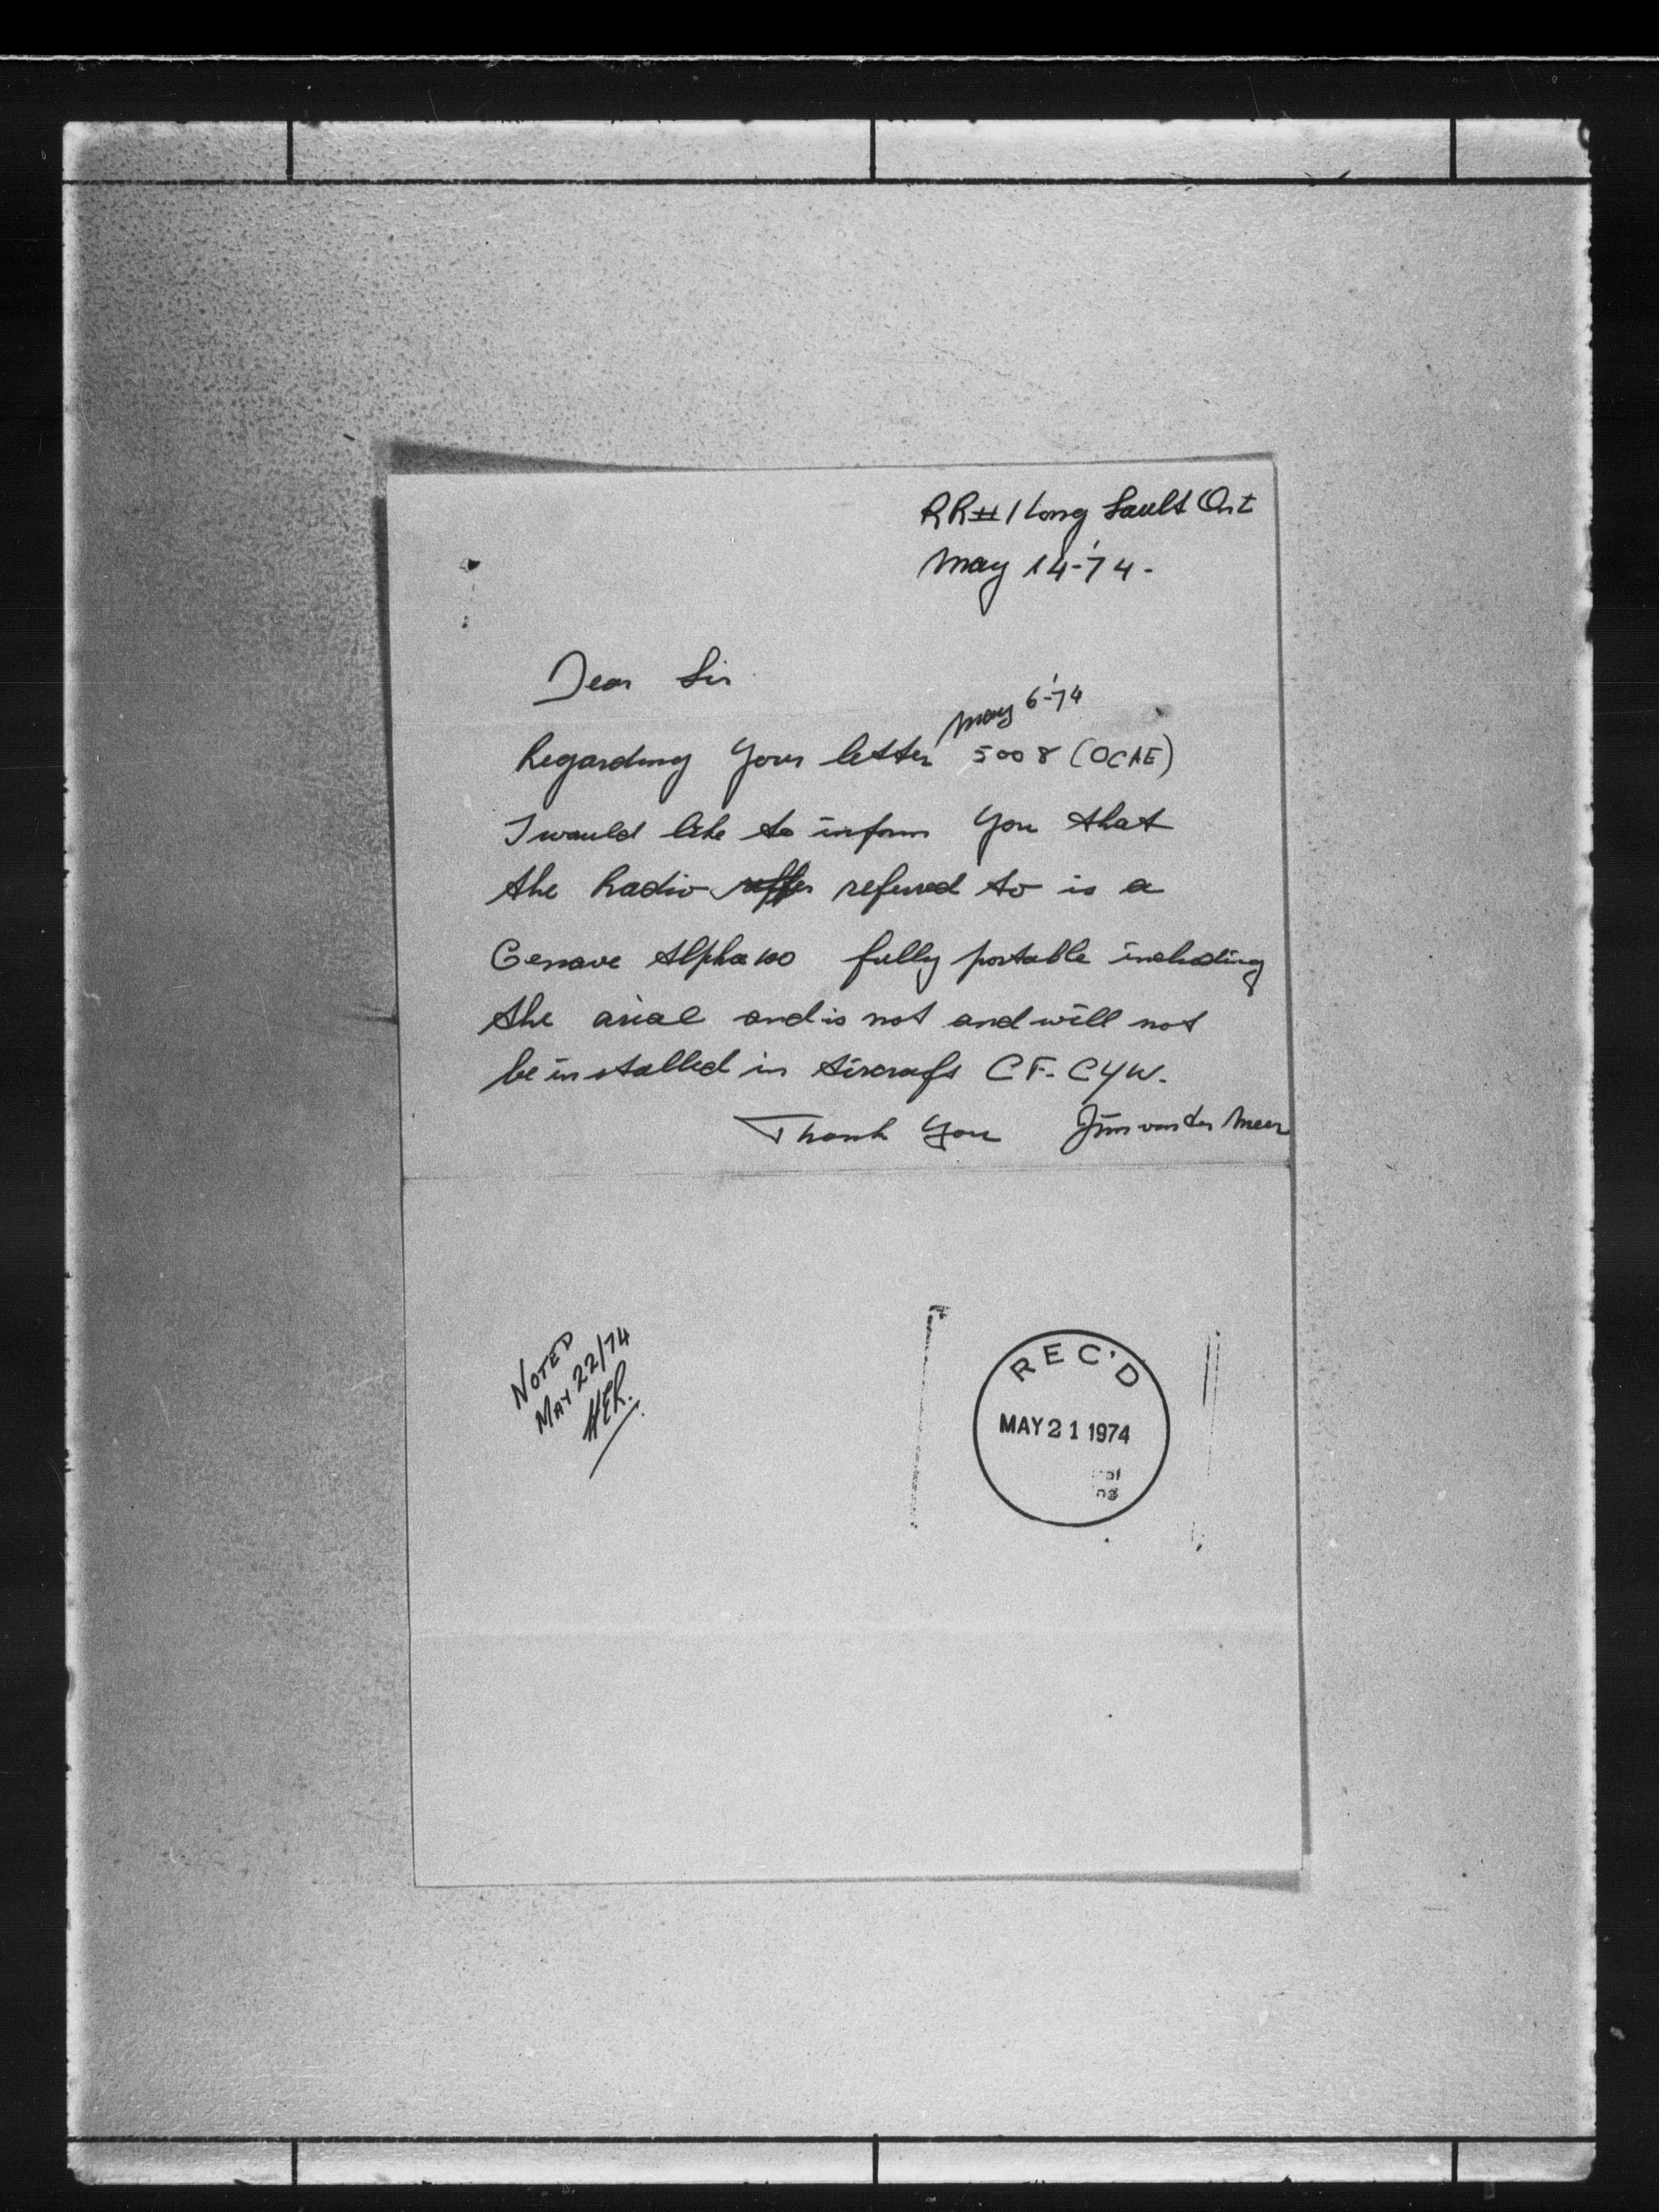 RR#1 Long Sault Ont
May 14-'74-
Dear Sir
May 6-'74
Regarding your letter 5008 (OCAE)
I would like to inform you that
the Radio reffer referred to is a
Genave Alpha 100 fully portable including
the arial and is not and will not
be installed in Aircraft CF-CYW.
Thank you Jim van der Meer
NOTED
MAY 22/74
HER.
REC'D
MAY 21 1974